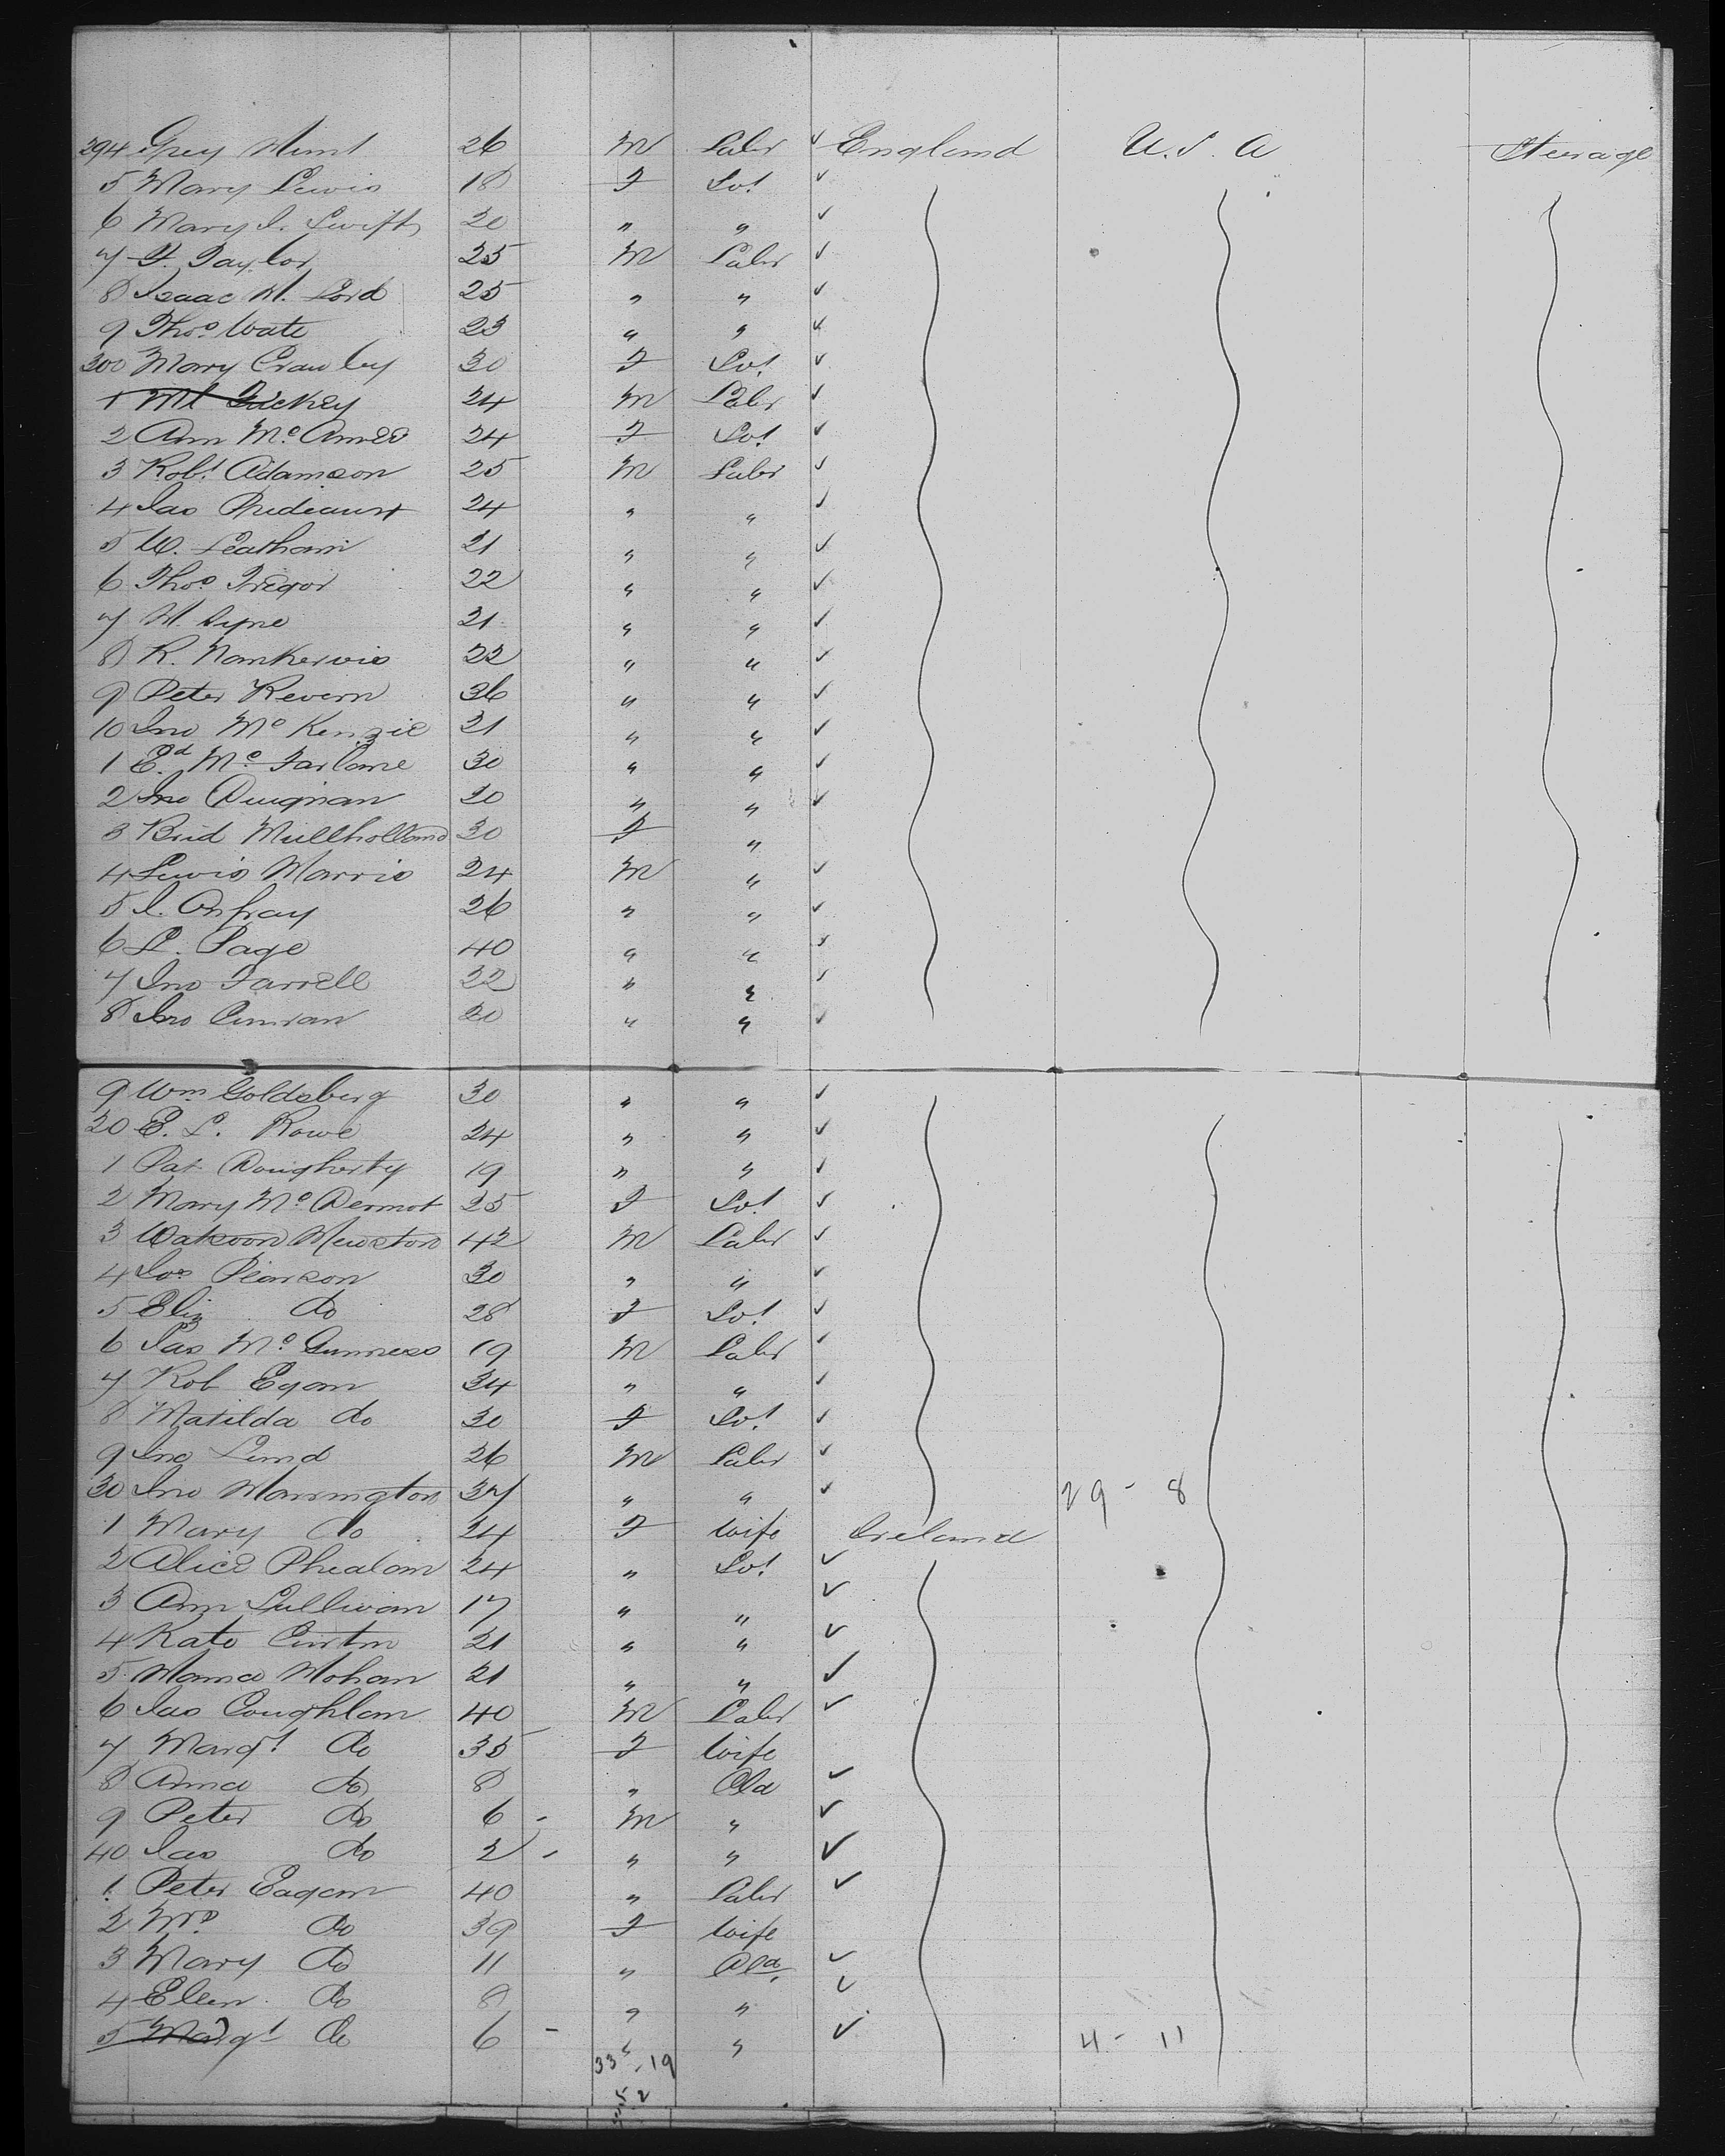 294 Grey Hunt 26 M Labr ✓ England U.S.A Steerage
5 Mary Lewis 18 F Spt ✓
6 Mary J. Swift 20 " " ✓
7 F. Taylor 25 M Labr ✓
8 Isaac H. Lord 25 " " ✓
9 Thos Wate 23 " " ✓
300 Mary Crawley 30 F Spt ✓
1 Ml Hickey 24 M Labr ✓
2 Ann Mc 24 F Spt ✓
3 Robt Adamson 25 M Labr ✓
4 Jas Prideaux 24 " " ✓
5 W. Leatham 21 " " ✓
6 Thos Tregor 22 " " ✓
7 H. Syne 21 " " ✓
8 R. Nankervis 22 " " ✓
9 Peter Revern 36 " " ✓
10 Jno McKenzie 21 " " ✓
1 Ed McFarlane 30 " " ✓
2 Jno Duignan 20 " " ✓
3 Brid Mullholland 30 F "
4 Lewis Harris 24 M " ✓
5 J. 26 " " ✓
6 L. Page 40 " " ✓
7 Jno Farrell 22 " " ✓
8 Jno Curran 20 " " ✓
9 Wm Goldsberg 30 " " ✓
20 E. L. Rowe 24 " " ✓
1 Pat Dougherty 19 " " ✓
2 Mary McDermot 25 F Spt ✓
3 Watson Hewston 42 M Labr ✓
4 Jos Pearson 30 " " ✓
5 Eliz do 28 F Spt ✓
6 Jas McGunness 19 M Labr ✓
7 Rob Egan 34 " " ✓
8 Matilda do 30 F Spt ✓
9 Jno Lund 26 M Labr ✓
30 Jno Harrington 37 " " ✓ 29 - 8
1 Mary do 24 F Wife Ireland
2 Alice Phealan 24 " Spt ✓
3 Ann Sullivan 17 " " ✓
4 Kate Curtin 21 " " ✓
5 Hanna Mohan 21 " " ✓
6 Jas Coughlan 40 M Labr ✓
7 Margt do 35 F Wife
8 Anna do 8 " Cld ✓
9 Peter do 6 - M " ✓
40 Jas do 2 - " " ✓
1 Peter Eagan 40 " Labr ✓
2 Mrs do 39 F Wife
3 Mary do 11 " Cld ✓
4 Ellen do 8 " " ✓
5 Margt do 6 - " " ✓ 4 - 11
33 - 19
52